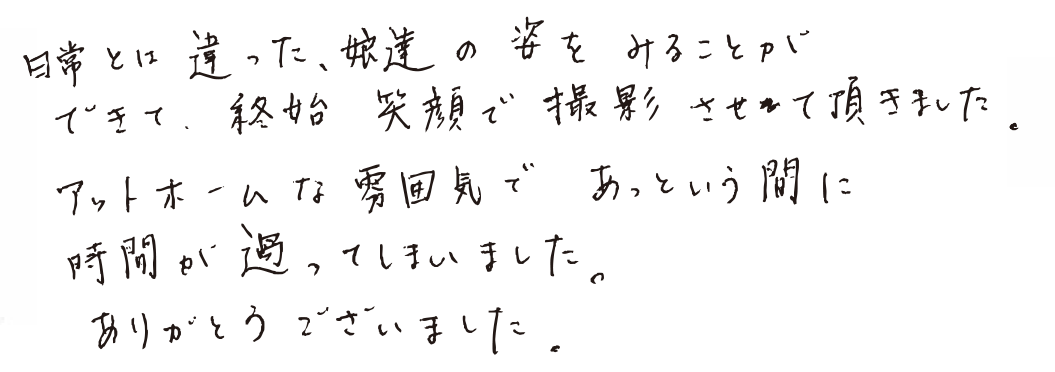 日常とは違った、娘達の姿をみることが
できて、終始笑顔で撮影させて頂きました。
アットホームな雰囲気であっという間に
時間が過ってしまいました。
ありがとうございました。